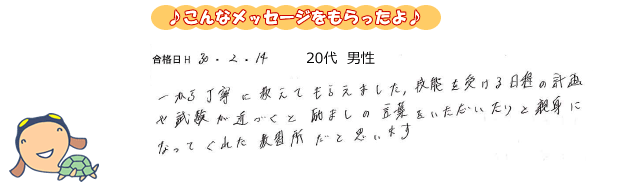 ♪こんなメッセージをもらったよ♪
合格日H 30.2.14 20代 男性
一から丁寧に教えてもらえました。技能を受ける日程の計画
や試験が近づくと励ましの言葉をいただいたりと親身に
なってくれた教習所だと思います